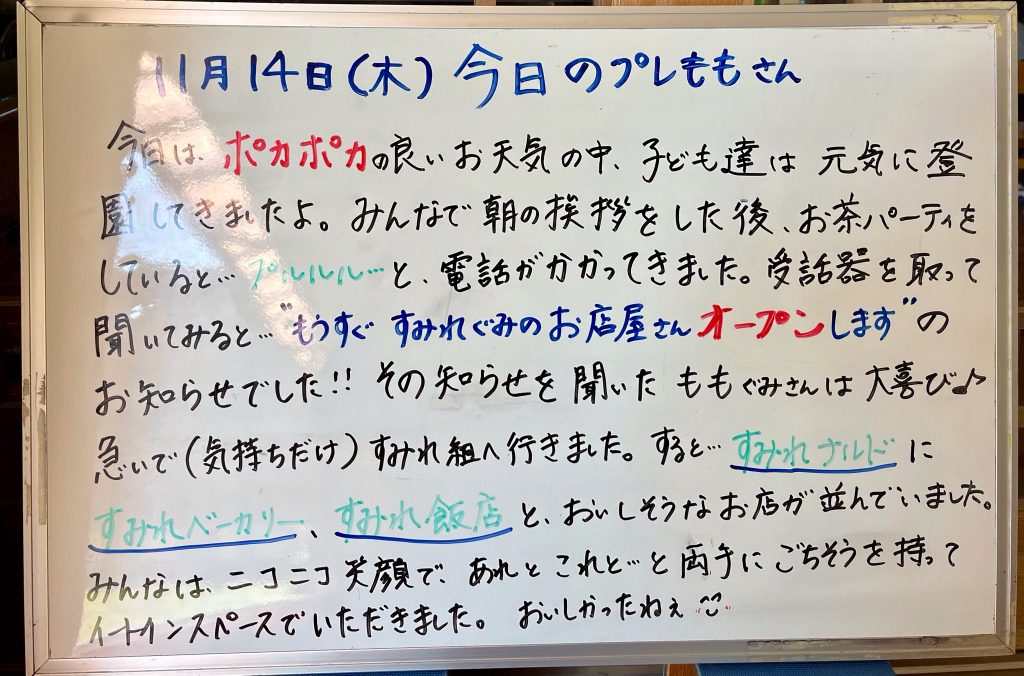 11月14日(木) 今日のプレももさん
今日は、ポカポカの良いお天気の中、子ども達は 元気に登
園してきましたよ。みんなで朝の挨拶をした後、お茶パーティを
していると…プルルルル…と、電話がかかってきました。受話器を取って
聞いてみると…"もうすぐ すみれぐみのお店屋さん オープンします"の
お知らせでした!! その知らせを聞いた ももぐみさんは 大喜び♪
急いで(気持ちだけ)すみれ組へ行きました。すると…すみれナルドに
すみれベーカリー、すみれ飯店と、おいしそうなお店が並んでいました。
みんなは、ニコニコ笑顔で、あれとこれと…と両手にごちそうを持って
イートインスペースでいただきました。 おいしかったねぇ